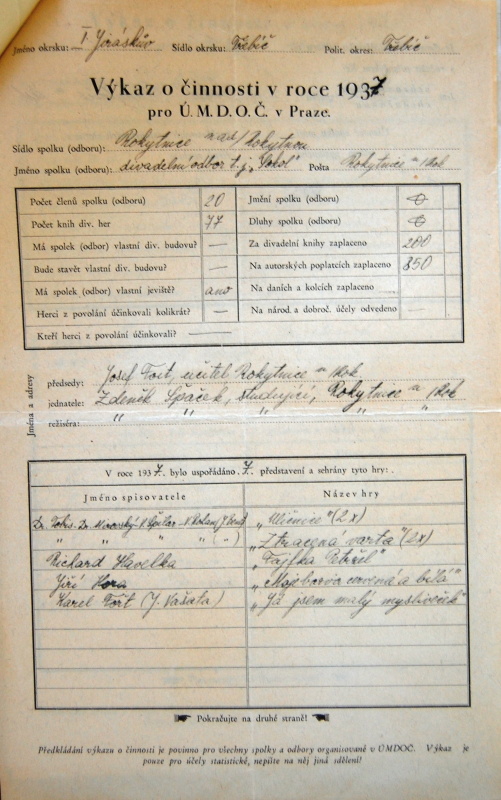 Jméno okrsku: I Jiráskův Sídlo okrsku: Třebíč Polit. okres: Třebíč
Výkaz o činnosti v roce 1937
pro Ú.M.D.O.Č. v Praze.
Sídlo spolku (odboru): Rokytnice nad/Rokytnou
Jméno spolku (odboru): divadelní odbor t.j. „Sokol" Pošta Rokytnice n Rok
Počet členů spolku (odboru) 20 Jmění spolku (odboru) 0
Počet knih div. her 77 Dluhy spolku (odboru) 0
Má spolek (odbor) vlastní div. budovu? — Za divadelní knihy zaplaceno 200
Bude stavět vlastní div. budovu? — Na autorských poplatcích zaplaceno 350
Má spolek (odbor) vlastní jeviště? ano Na daních a kolcích zaplaceno
Herci z povolání účinkovali kolikrát? — Na národ. a dobroč. účely odvedeno —
Kteří herci z povolání účinkovali? —
Jména a adresy
předsedy: Josef Fořt, učitel Rokytnice n Rok
jednatele: Zdeněk Špaček, studující, Rokytnice n Rok
režiséra: " " " " "
V roce 1937. bylo uspořádáno 7. představení a sehrány tyto hry:
Jméno spisovatele Název hry
Dr. Dr. „Uličnice" (2x)
" " " " " „Ztracená varta" (2x)
Richard Havelka „Fajfka Petřel"
Jiří Hora „ červená a bílá"
Karel Fořt (J. Vašata) „Já jsem malý mysliveček"
Pokračujte na druhé straně!
Předkládání výkazu o činnosti je povinno pro všechny spolky a odbory organisované v ÚMDOČ. Výkaz je
pouze pro účely statistické, nepište na něj jiná sdělení!